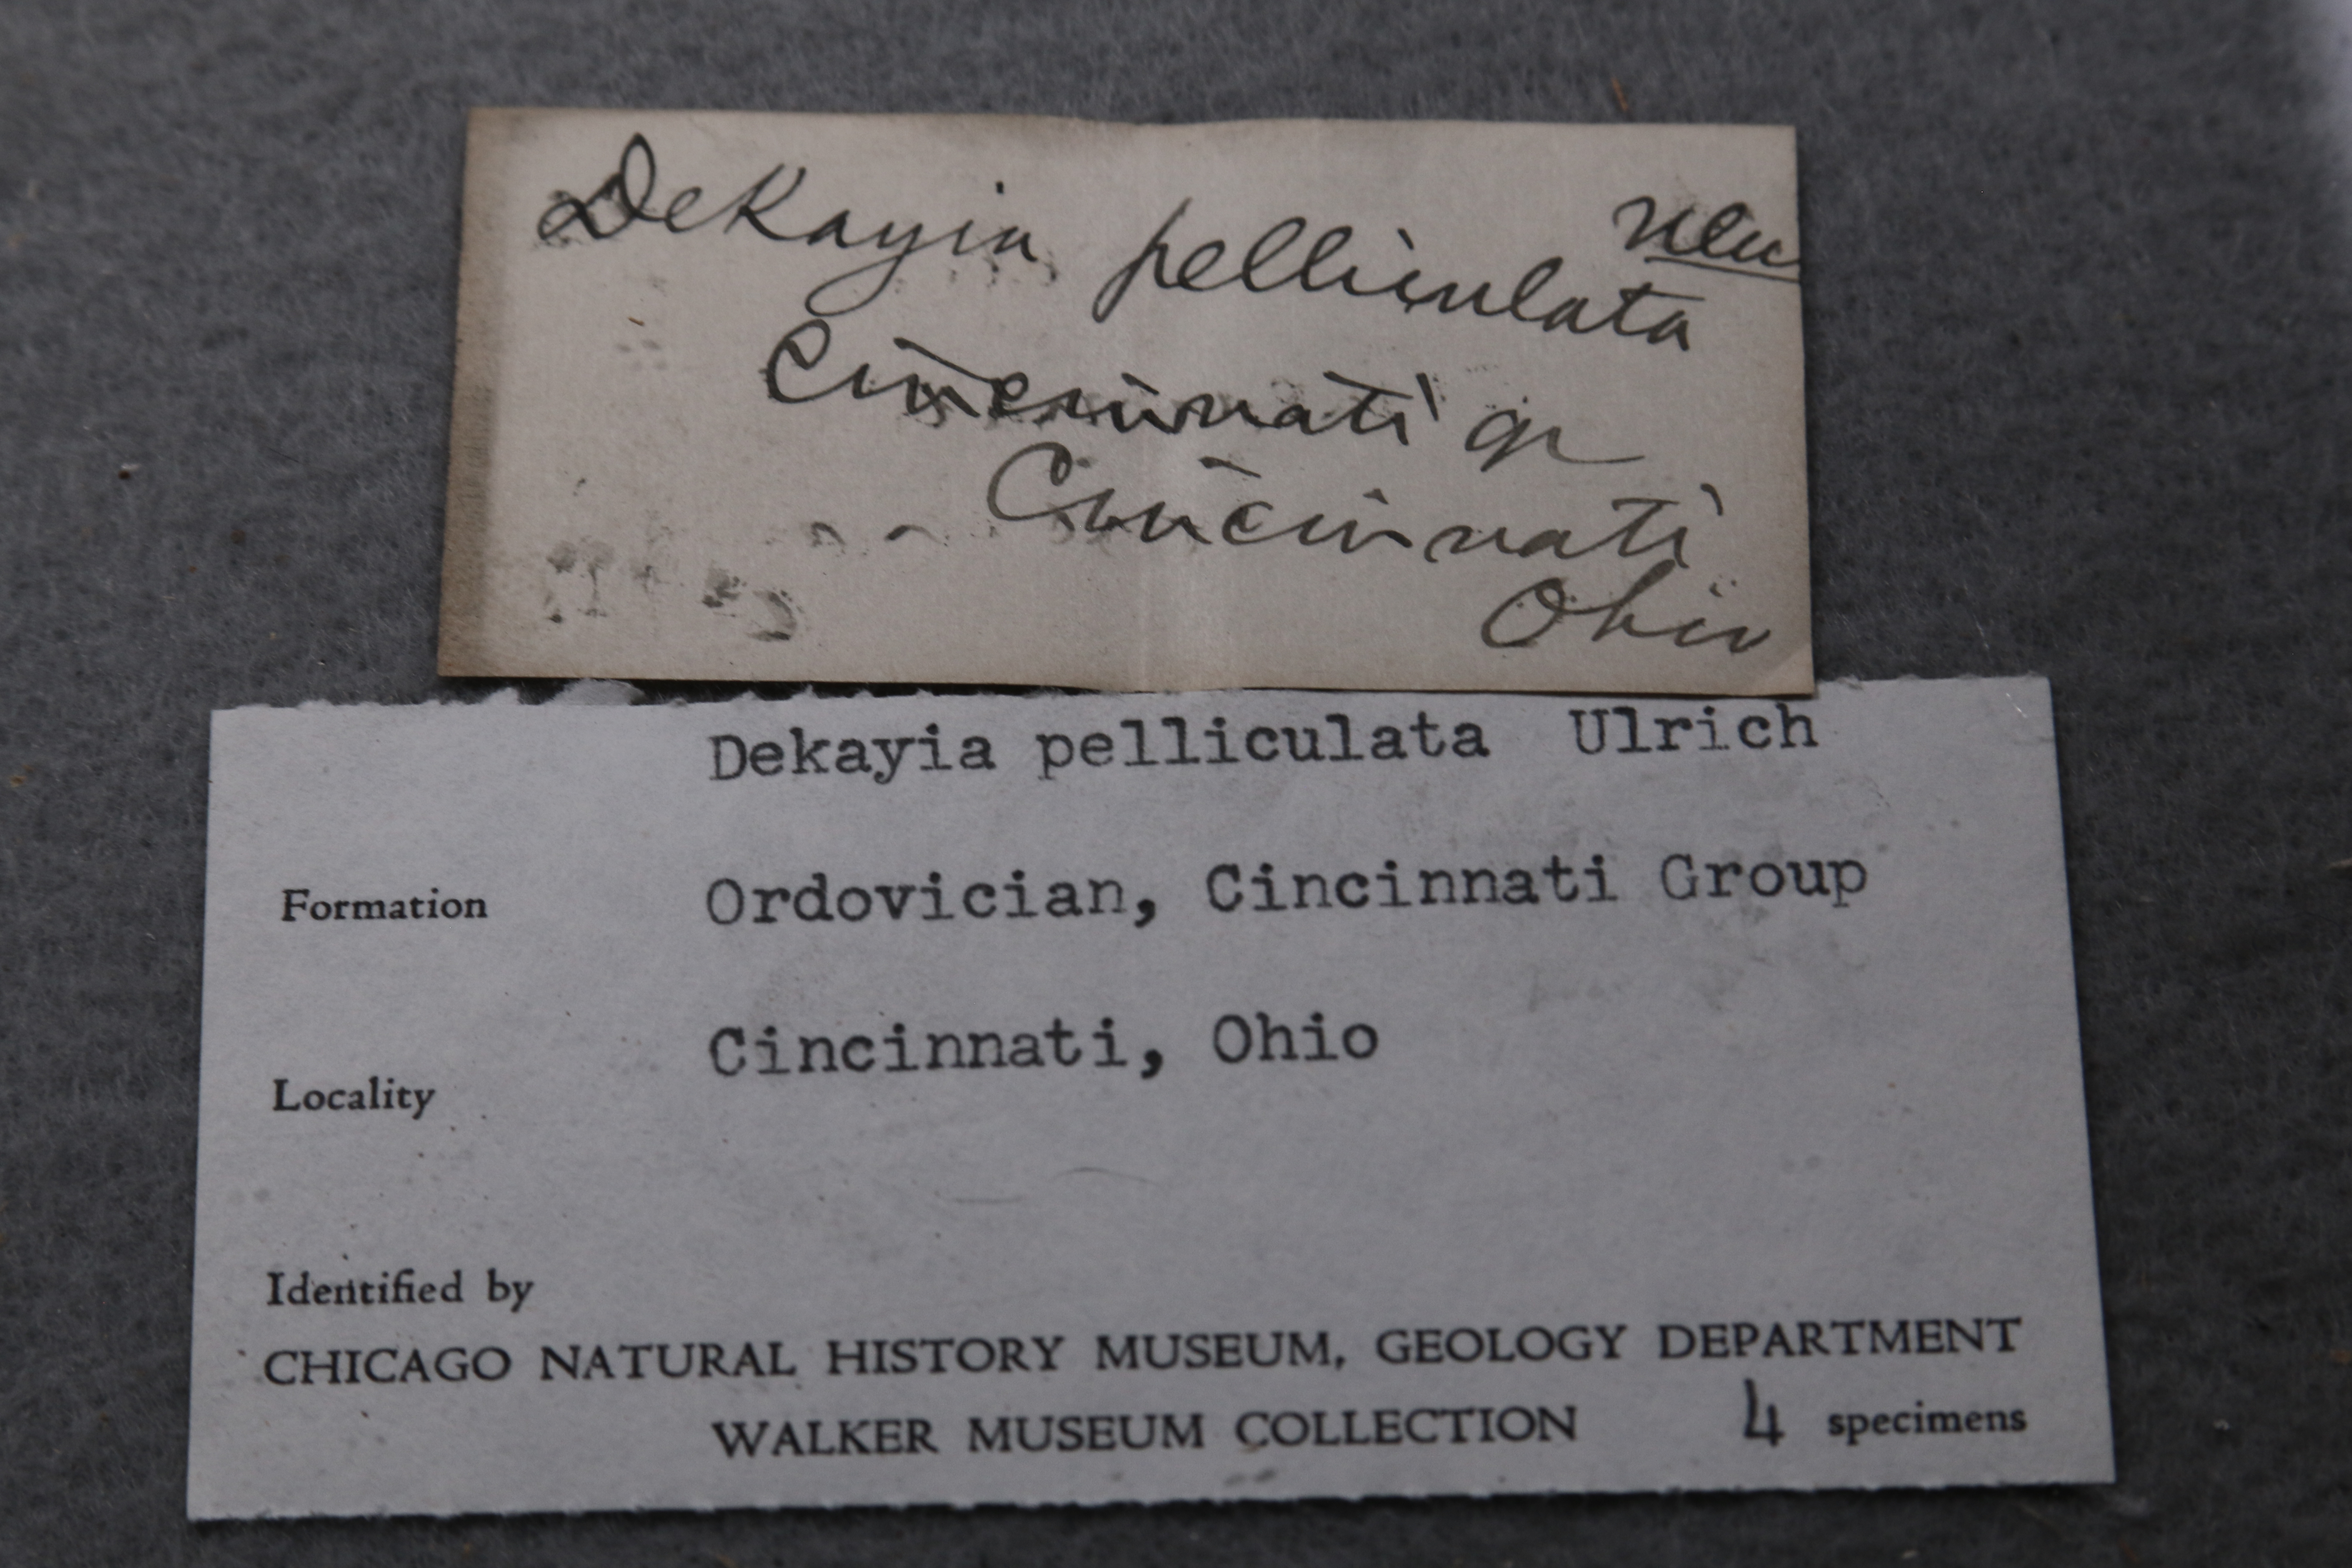 new
DeKayia pelliculata
Cincinnati gr
Cincinnati
Ohio
Dekayia pelliculata Ulrich
Formation Ordovician, Cincinnati Group
Locality Cincinnati, Ohio
Identified by
CHICAGO NATURAL HISTORY MUSEUM, GEOLOGY DEPARTMENT
WALKER MUSEUM COLLECTION 4 specimens